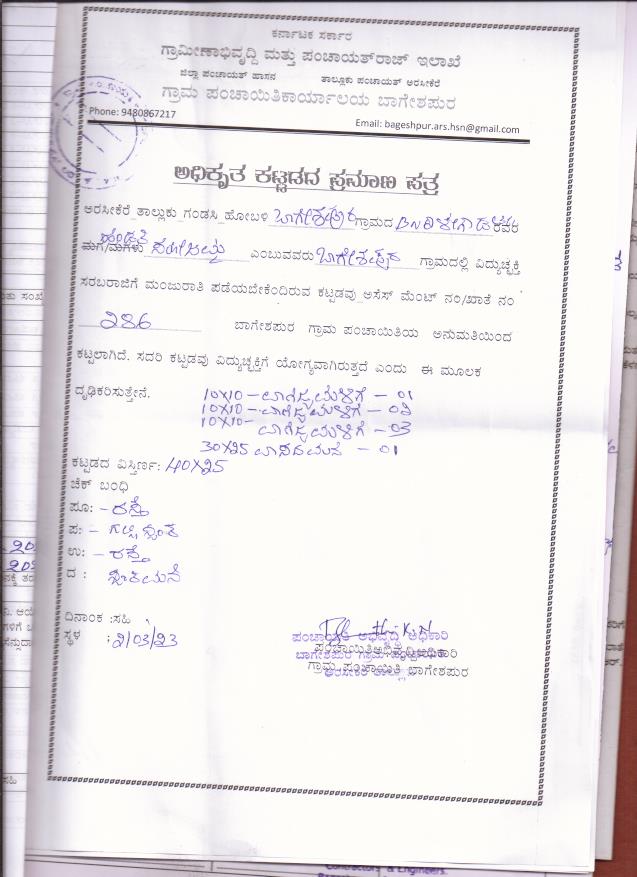 ಕರ್ನಾಟಕ ಸರ್ಕಾರ
ಗ್ರಾಮೀಣಾಭಿವೃದ್ಧಿ ಮತ್ತು ಪಂಚಾಯತ್‌ರಾಜ್ ಇಲಾಖೆ
ಜಿಲ್ಲಾ ಪಂಚಾಯತ್ ಹಾಸನ ತಾಲ್ಲೂಕು ಪಂಚಾಯತ್ ಅರಸೀಕೆರೆ
ಗ್ರಾಮ ಪಂಚಾಯಿತಿಕಾರ್ಯಾಲಯ ಬಾಗೇಶಪುರ
Phone: 9480867217
Email: bageshpur.ars.hsn@gmail.com
ಅಧಿಕೃತ ಕಟ್ಟಡದ ಪ್ರಮಾಣ ಪತ್ರ
ಅರಸೀಕೆರೆ ತಾಲ್ಲೂಕು ಗಂಡಸಿ ಹೋಬಳಿ ಬಾಗೇಶಪುರ ಗ್ರಾಮದ ರವರ
ಮಗ/ಮಗಳು ಎಂಬುವವರು ಬಾಗೇಶಪುರ ಗ್ರಾಮದಲ್ಲಿ ವಿದ್ಯುಚ್ಛಕ್ತಿ
ಸರಬರಾಜಿಗೆ ಮಂಜುರಾತಿ ಪಡೆಯಬೇಕೆಂದಿರುವ ಕಟ್ಟಡವು ಅಸೆಸ್ ಮೆಂಟ್ ನಂ/ಖಾತೆ ನಂ
286 ಬಾಗೇಶಪುರ ಗ್ರಾಮ ಪಂಚಾಯಿತಿಯ ಅನುಮತಿಯಿಂದ
ಕಟ್ಟಲಾಗಿದೆ. ಸದರಿ ಕಟ್ಟಡವು ವಿದ್ಯುಚ್ಛಕ್ತಿಗೆ ಯೋಗ್ಯವಾಗಿರುತ್ತದೆ ಎಂದು ಈ ಮೂಲಕ
ದೃಢಿಕರಿಸುತ್ತೇನೆ.
10X10 - ವಾಣಿಜ್ಯ ಮಳಿಗೆ - 01
10X10 - ವಾಣಿಜ್ಯ ಮಳಿಗೆ - 02
10X10 - ವಾಣಿಜ್ಯ ಮಳಿಗೆ - 03
30X25 ವಾಸದ ಮನೆ - 01
ಕಟ್ಟಡದ ವಿಸ್ತೀರ್ಣ: 40X25
ಚೆಕ್ ಬಂಧಿ
ಪೂ: - ರಸ್ತೆ
ಪ: -
ಉ: - ರಸ್ತೆ
ದ :
ದಿನಾಂಕ :ಸಹಿ
ಸ್ಥಳ : 2/03/23
ಪಂಚಾಯಿತಿ ಅಭಿವೃದ್ಧಿ ಅಧಿಕಾರಿ
ಪಂಚಾಯಿತಿಅಭಿವೃದ್ಧಿಅಧಿಕಾರಿ
ಗ್ರಾಮ ಪಂಚಾಯಿತಿ ಬಾಗೇಶಪುರ
Contractors & Engineers.